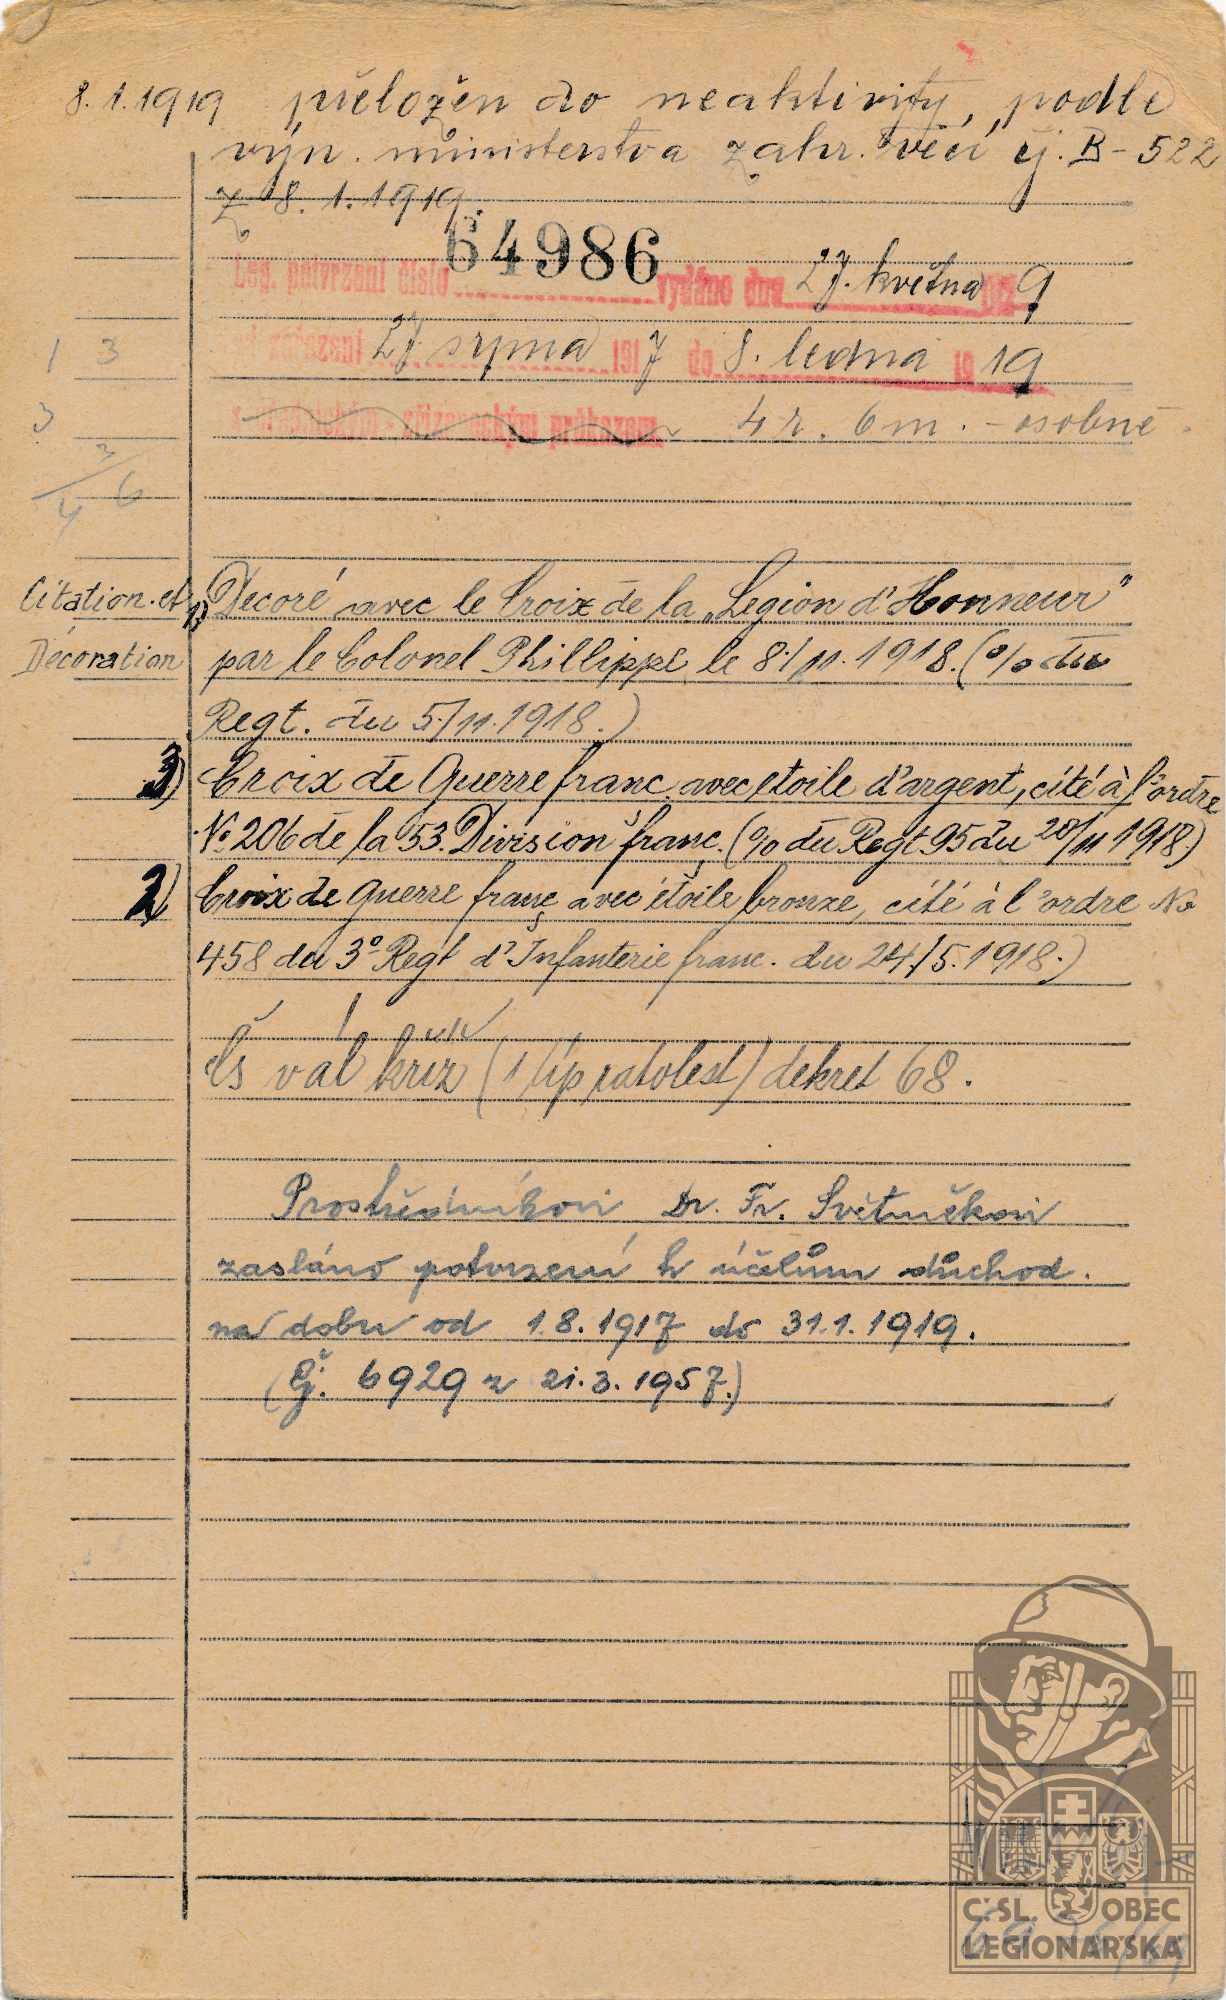 8.1.1919 přeložen do neaktivity, podle
výn. ministerstva zahr. věcí čj. B-522
z 8.1.1919.
Leg. potvrzení číslo 64986 vydáno dne 27. května 9
zařazení 27. srpna 1917 do 8. ledna 1919
průkazem 4 r. 6 m. - osobně
1 3
3
3
4 6
Citation et 1) Décoré avec le Croix de la „Legion d'Honneur"
Décoration par le Colonel Phillippe le 8./11. 1918. (% du
Regt. du 5./11. 1918.)
3) Croix de Guerre franc. avec etoile d'argent, cité à l'ordre
No 206 de la 53. Division franç. (% du Regt. 95 du 20/11 1918.)
2) Croix de Guerre franç avec étoile bronze, cité à l'ordre No
458 du 3º Regt d'Infanterie franc. du 24/5. 1918.)
Čs vál kříž (1 líp ratolest) dekret 68.
Prostředníkovi Dr. Fr. Světničkovi
zasláno potvrzení k účelům důchod.
na dobu od 1.8.1917 do 31.1.1919.
(Čj. 6929 z 21.3.1957.)
Č.SL. OBEC
LEGIONÁŘSKÁ